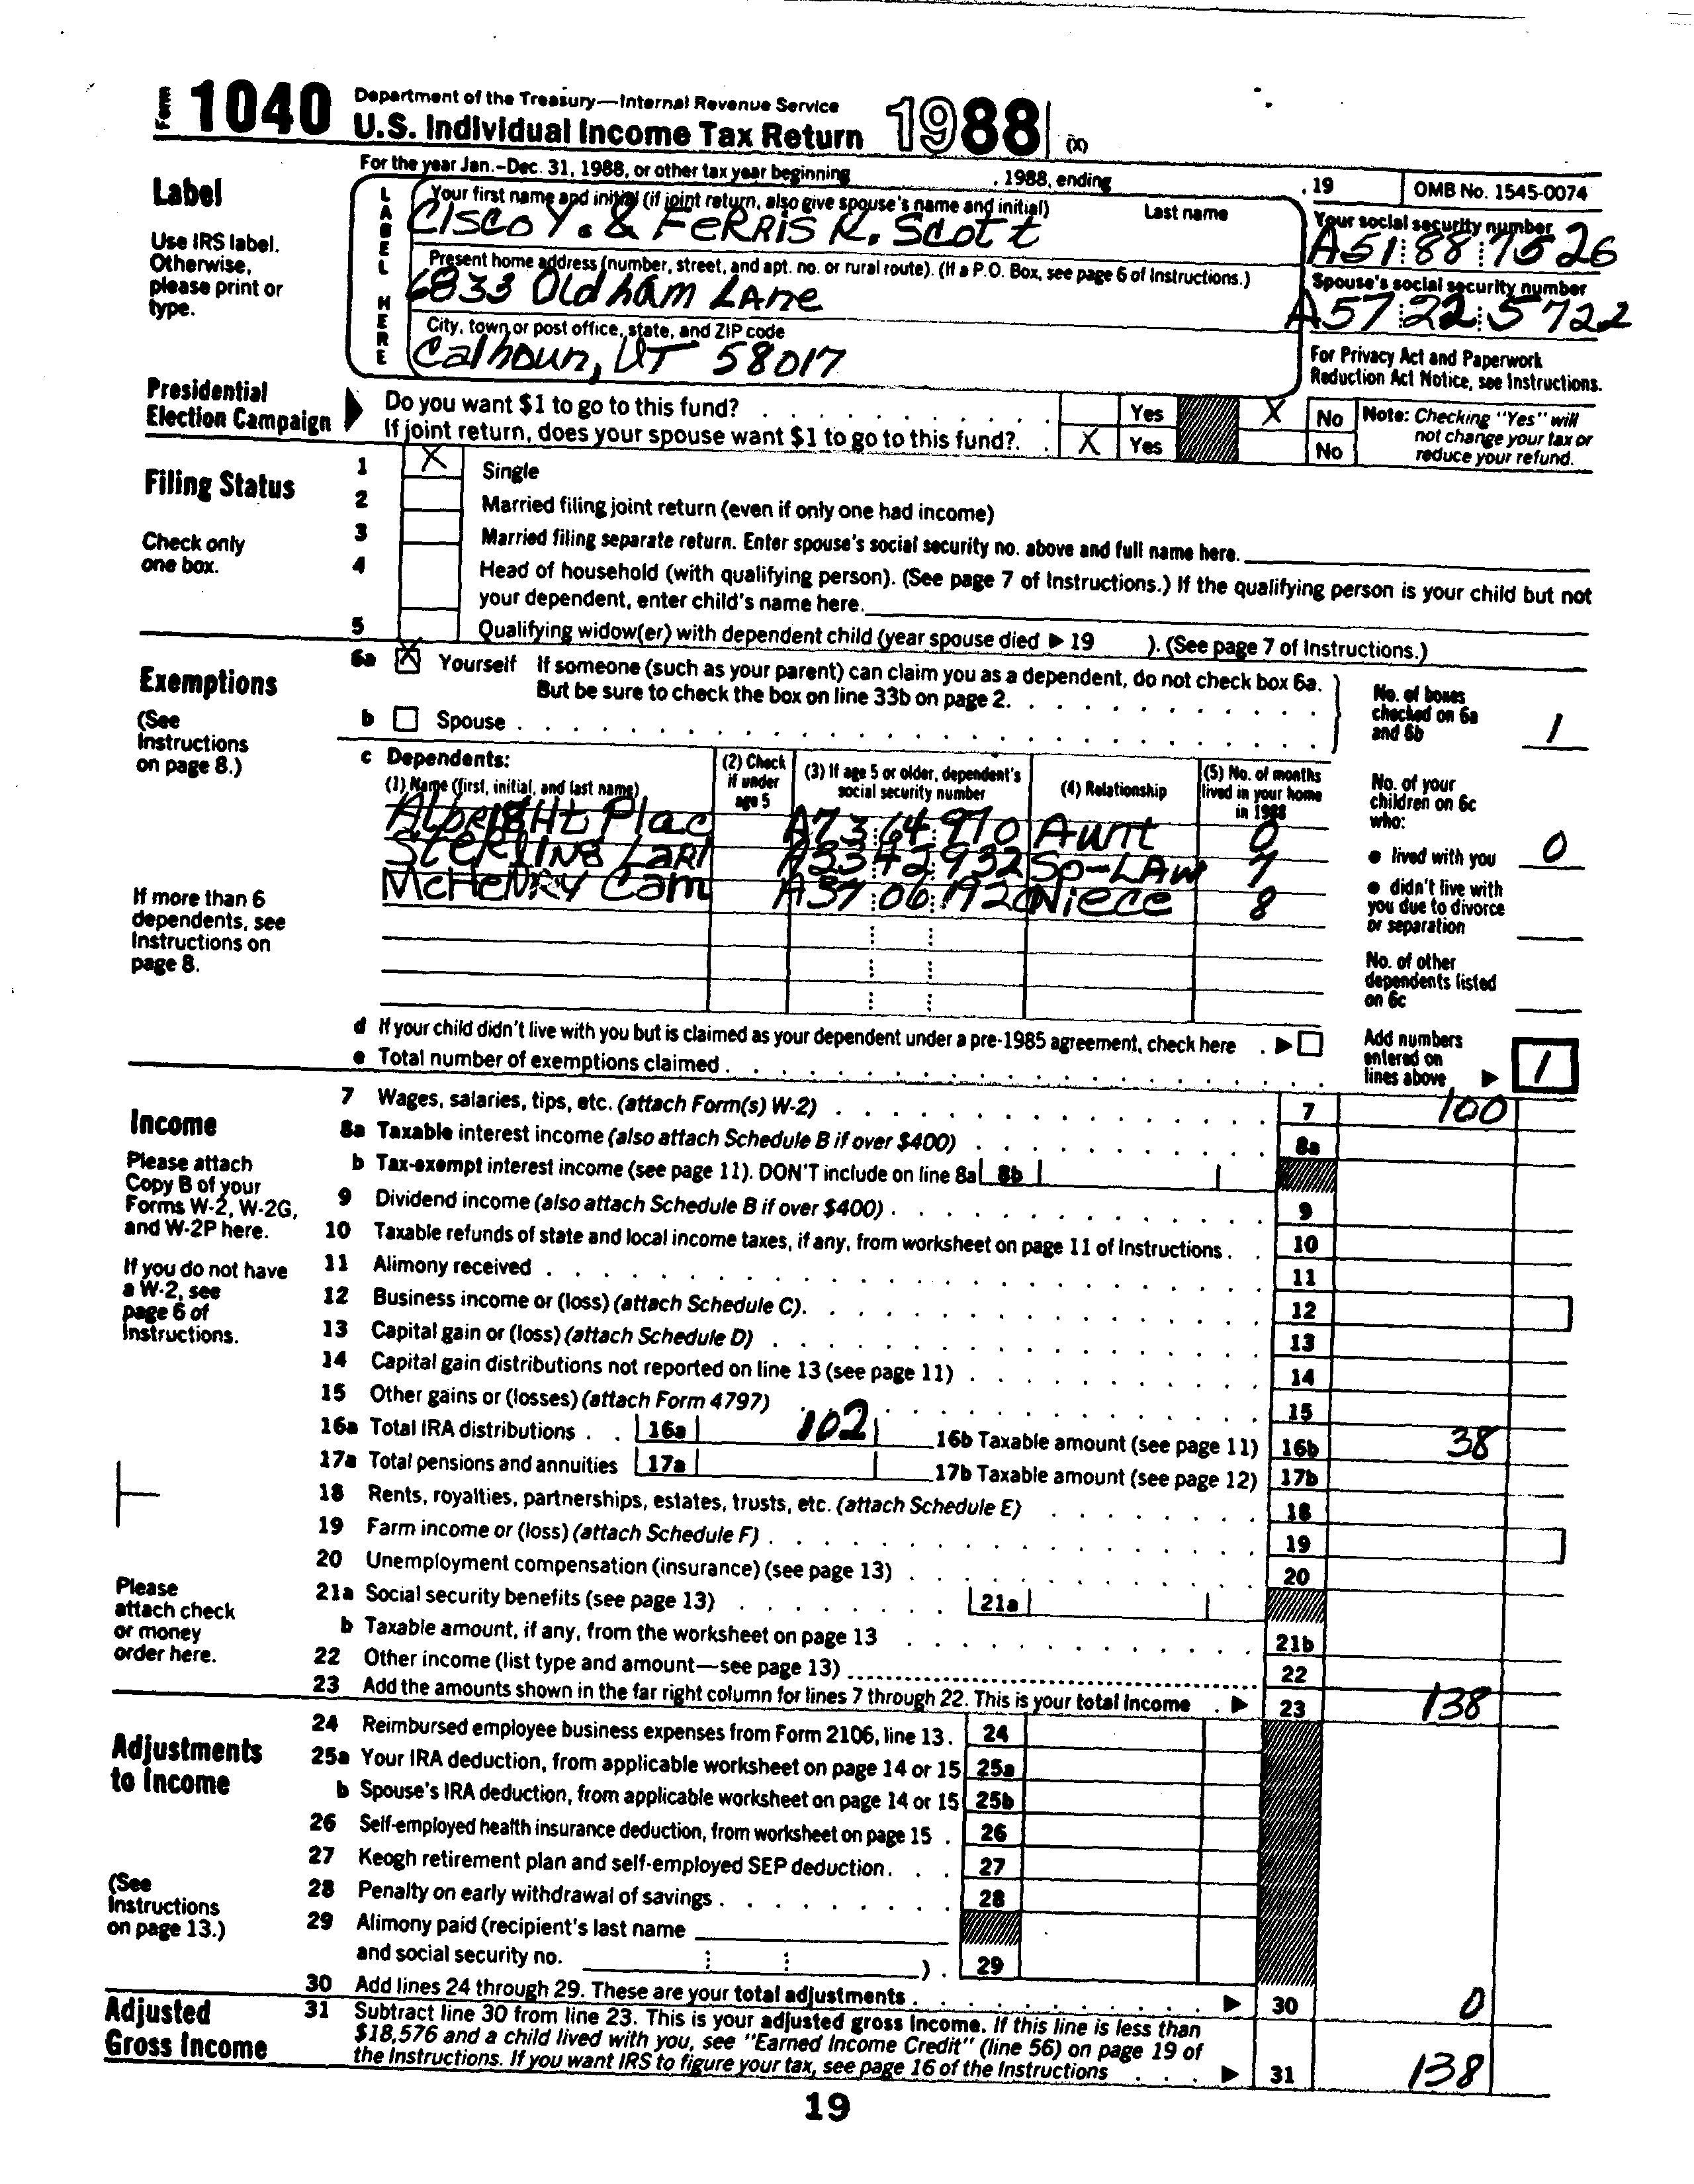 Form 1040 Department of the Treasury—Internal Revenue Service
U.S. Individual Income Tax Return 1988 (X)
For the year Jan.–Dec. 31, 1988, or other tax year beginning , 1988, ending , 19 OMB No. 1545-0074
Label
Use IRS label.
Otherwise,
please print or
type.
LABEL HERE
Your first name and initial (if joint return, also give spouse's name and initial) Last name
CISCO Y. & FERRIS R. Scott
Your social security number
A51 88 7526
Present home address (number, street, and apt. no. or rural route). (If a P.O. Box, see page 6 of Instructions.)
6833 Oldham LAne
Spouse's social security number
A57 22 5722
City, town or post office, state, and ZIP code
Calhoun, UT 58017
For Privacy Act and Paperwork
Reduction Act Notice, see Instructions.
Presidential
Election Campaign
Do you want $1 to go to this fund? Yes X No
If joint return, does your spouse want $1 to go to this fund? X Yes No
Note: Checking "Yes" will
not change your tax or
reduce your refund.
Filing Status
Check only
one box.
1 X Single
2 Married filing joint return (even if only one had income)
3 Married filing separate return. Enter spouse's social security no. above and full name here.
4 Head of household (with qualifying person). (See page 7 of Instructions.) If the qualifying person is your child but not
your dependent, enter child's name here.
5 Qualifying widow(er) with dependent child (year spouse died ▶ 19 ). (See page 7 of Instructions.)
Exemptions
(See
Instructions
on page 8.)
6a X Yourself If someone (such as your parent) can claim you as a dependent, do not check box 6a.
But be sure to check the box on line 33b on page 2.
b Spouse
No. of boxes
checked on 6a
and 6b 1
c Dependents:
(1) Name (first, initial, and last name)
(2) Check
if under
age 5
(3) If age 5 or older, dependent's
social security number
(4) Relationship
(5) No. of months
lived in your home
in 1988
AlbRIGHt Plac A73 64 9710 AUnt 0
SteRLING LARI A33 42 932 Sp-LAW 7
McHeNRY Cam A37 06 1920 Niece 8
If more than 6
dependents, see
Instructions on
page 8.
No. of your
children on 6c
who:
● lived with you 0
● didn't live with
you due to divorce
or separation
No. of other
dependents listed
on 6c
d If your child didn't live with you but is claimed as your dependent under a pre-1985 agreement, check here ▶
e Total number of exemptions claimed
Add numbers
entered on
lines above ▶ 1
Income
Please attach
Copy B of your
Forms W-2, W-2G,
and W-2P here.
If you do not have
a W-2, see
page 6 of
Instructions.
Please
attach check
or money
order here.
7 Wages, salaries, tips, etc. (attach Form(s) W-2) 7 100
8a Taxable interest income (also attach Schedule B if over $400) 8a
b Tax-exempt interest income (see page 11). DON'T include on line 8a 8b
9 Dividend income (also attach Schedule B if over $400) 9
10 Taxable refunds of state and local income taxes, if any, from worksheet on page 11 of Instructions 10
11 Alimony received 11
12 Business income or (loss) (attach Schedule C) 12
13 Capital gain or (loss) (attach Schedule D) 13
14 Capital gain distributions not reported on line 13 (see page 11) 14
15 Other gains or (losses) (attach Form 4797) 15
16a Total IRA distributions 16a 102 16b Taxable amount (see page 11) 16b 38
17a Total pensions and annuities 17a 17b Taxable amount (see page 12) 17b
18 Rents, royalties, partnerships, estates, trusts, etc. (attach Schedule E) 18
19 Farm income or (loss) (attach Schedule F) 19
20 Unemployment compensation (insurance) (see page 13) 20
21a Social security benefits (see page 13) 21a
b Taxable amount, if any, from the worksheet on page 13 21b
22 Other income (list type and amount—see page 13) 22
23 Add the amounts shown in the far right column for lines 7 through 22. This is your total income ▶ 23 138
Adjustments
to Income
(See
Instructions
on page 13.)
24 Reimbursed employee business expenses from Form 2106, line 13. 24
25a Your IRA deduction, from applicable worksheet on page 14 or 15 25a
b Spouse's IRA deduction, from applicable worksheet on page 14 or 15 25b
26 Self-employed health insurance deduction, from worksheet on page 15 26
27 Keogh retirement plan and self-employed SEP deduction 27
28 Penalty on early withdrawal of savings 28
29 Alimony paid (recipient's last name
and social security no. ) 29
30 Add lines 24 through 29. These are your total adjustments ▶ 30 0
Adjusted
Gross Income
31 Subtract line 30 from line 23. This is your adjusted gross income. If this line is less than
$18,576 and a child lived with you, see "Earned Income Credit" (line 56) on page 19 of
the Instructions. If you want IRS to figure your tax, see page 16 of the Instructions ▶ 31 138
19